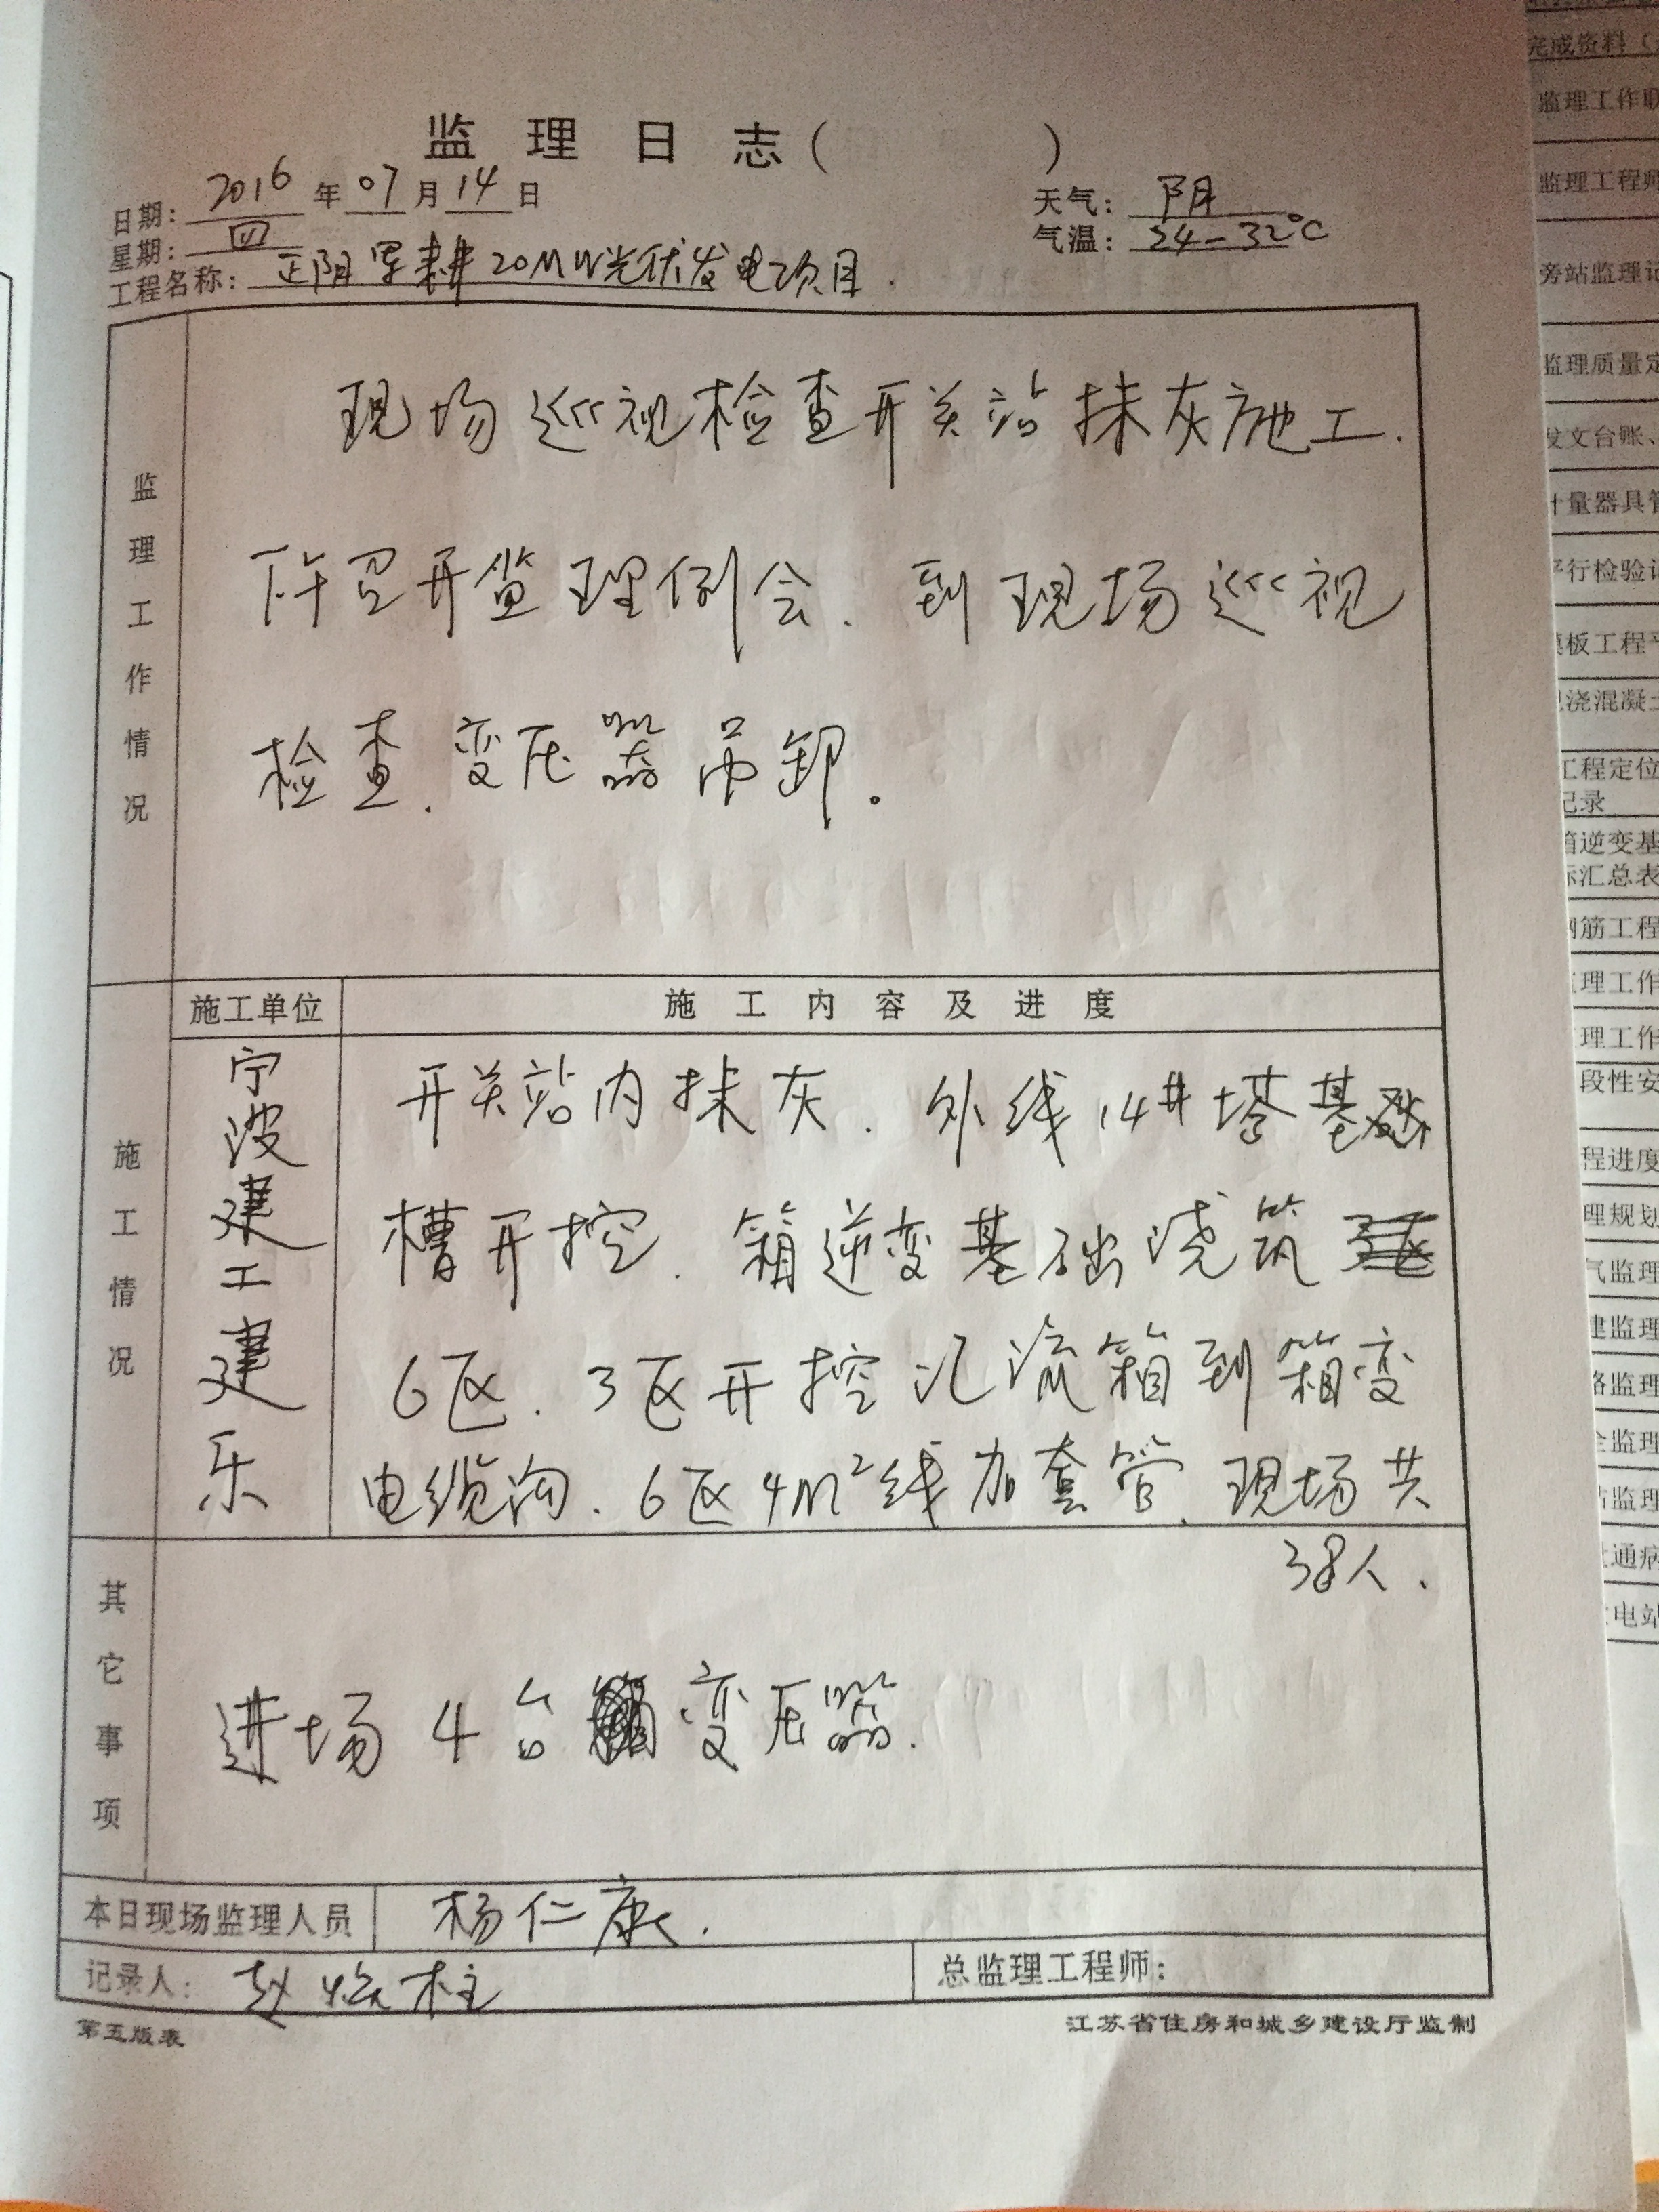 监理日志(  )
日期: 2016年07月14日
天气: 阴
星期: 四
气温: 24-32℃
工程名称: 正阴罗耕20MW光伏发电项目.
监理工作情况
现场巡视检查开关站抹灰施工.
下午召开监理例会. 到现场巡视
检查. 变压器吊卸。
施工情况
施工单位
施工内容及进度
宁波建工建乐
开关站内抹灰. 外线14#塔基
槽开挖. 箱逆变基础浇筑
6区. 3区开挖汇流箱到箱变
电缆沟. 6区4m²线加套管. 现场共
38人.
其它事项
进场4台变压器.
本日现场监理人员 杨仁康.
记录人: 赵焕柱
总监理工程师:
第五版表
江苏省住房和城乡建设厅监制
完成资料(
监理工作联
监理工程师
旁站监理记
监理质量定
发文台账、
计量器具管
平行检验记
模板工程平
现浇混凝土
工程定位
记录
箱逆变基
标汇总表
钢筋工程
监理工作
理工作
段性安
程进度
理规划
气监理
建监理
路监理
全监理
站监理
通病
电站